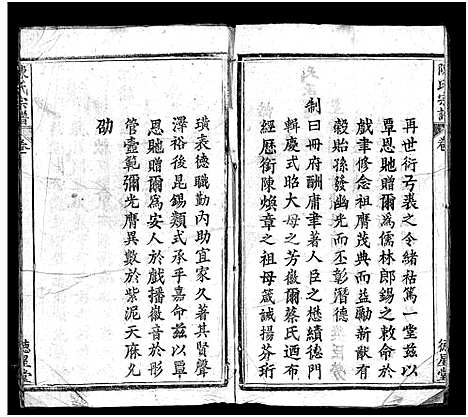 陳氏宗譜
卷
德星堂
再世衍弓裘之令緒祜篤一堂茲以
覃恩貤贈爾為儒林郎錫之敕命於
戲聿修念祖膺茂典而益勵新猷有
穀貽孫發幽光而丕彰潛德
制曰冊府酬庸聿著人臣之懋績德門
輯慶式昭大母之芳徽爾蔡氏迺布
經歷銜陳煥章之祖母箴誡揚芬珩
璜表德職勤內助宜家久著其賢聲
澤裕後昆錫類式承乎嘉命茲以覃
恩貤贈爾為安人於戲播徽音於彤
管壼範彌光膺異數於紫泥天庥允
劭
陳氏宗譜
卷一
德星堂